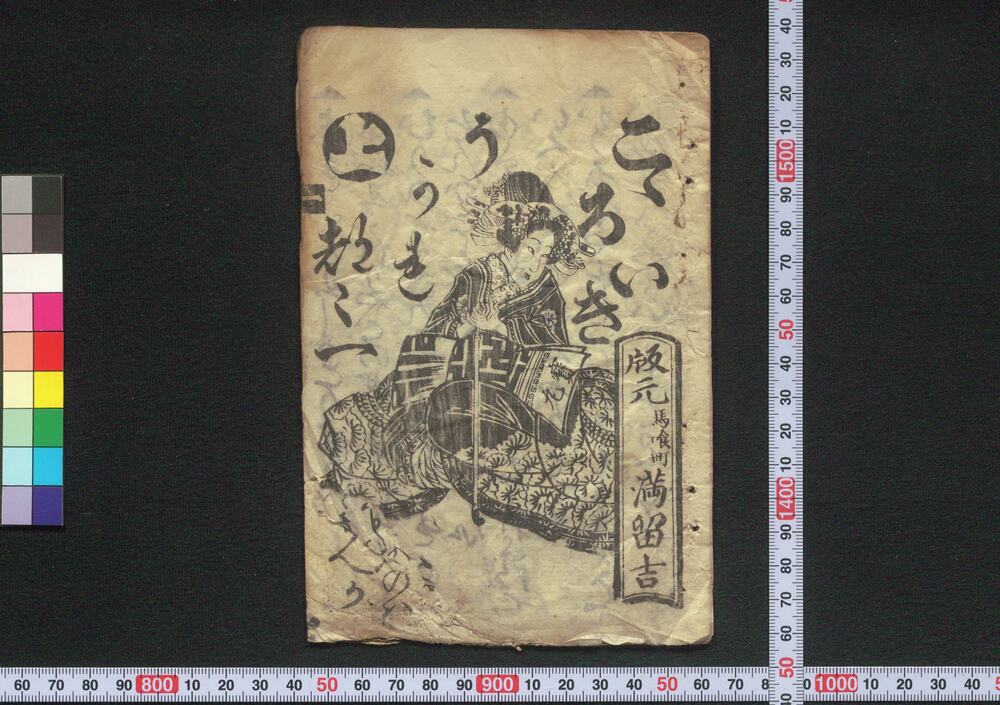 こゝろいき
うかれ
都々一
上
版元 馬喰町 満留吉
40 30 20 10 1500 90 80 70 60 50 40 30 20 10 1400 90 80 70 60 50 40
60 70 80 90 800 10 20 30 40 50 60 70 80 90 900 10 20 30 40 50 60 70 8 0 1000 10 20 30 40